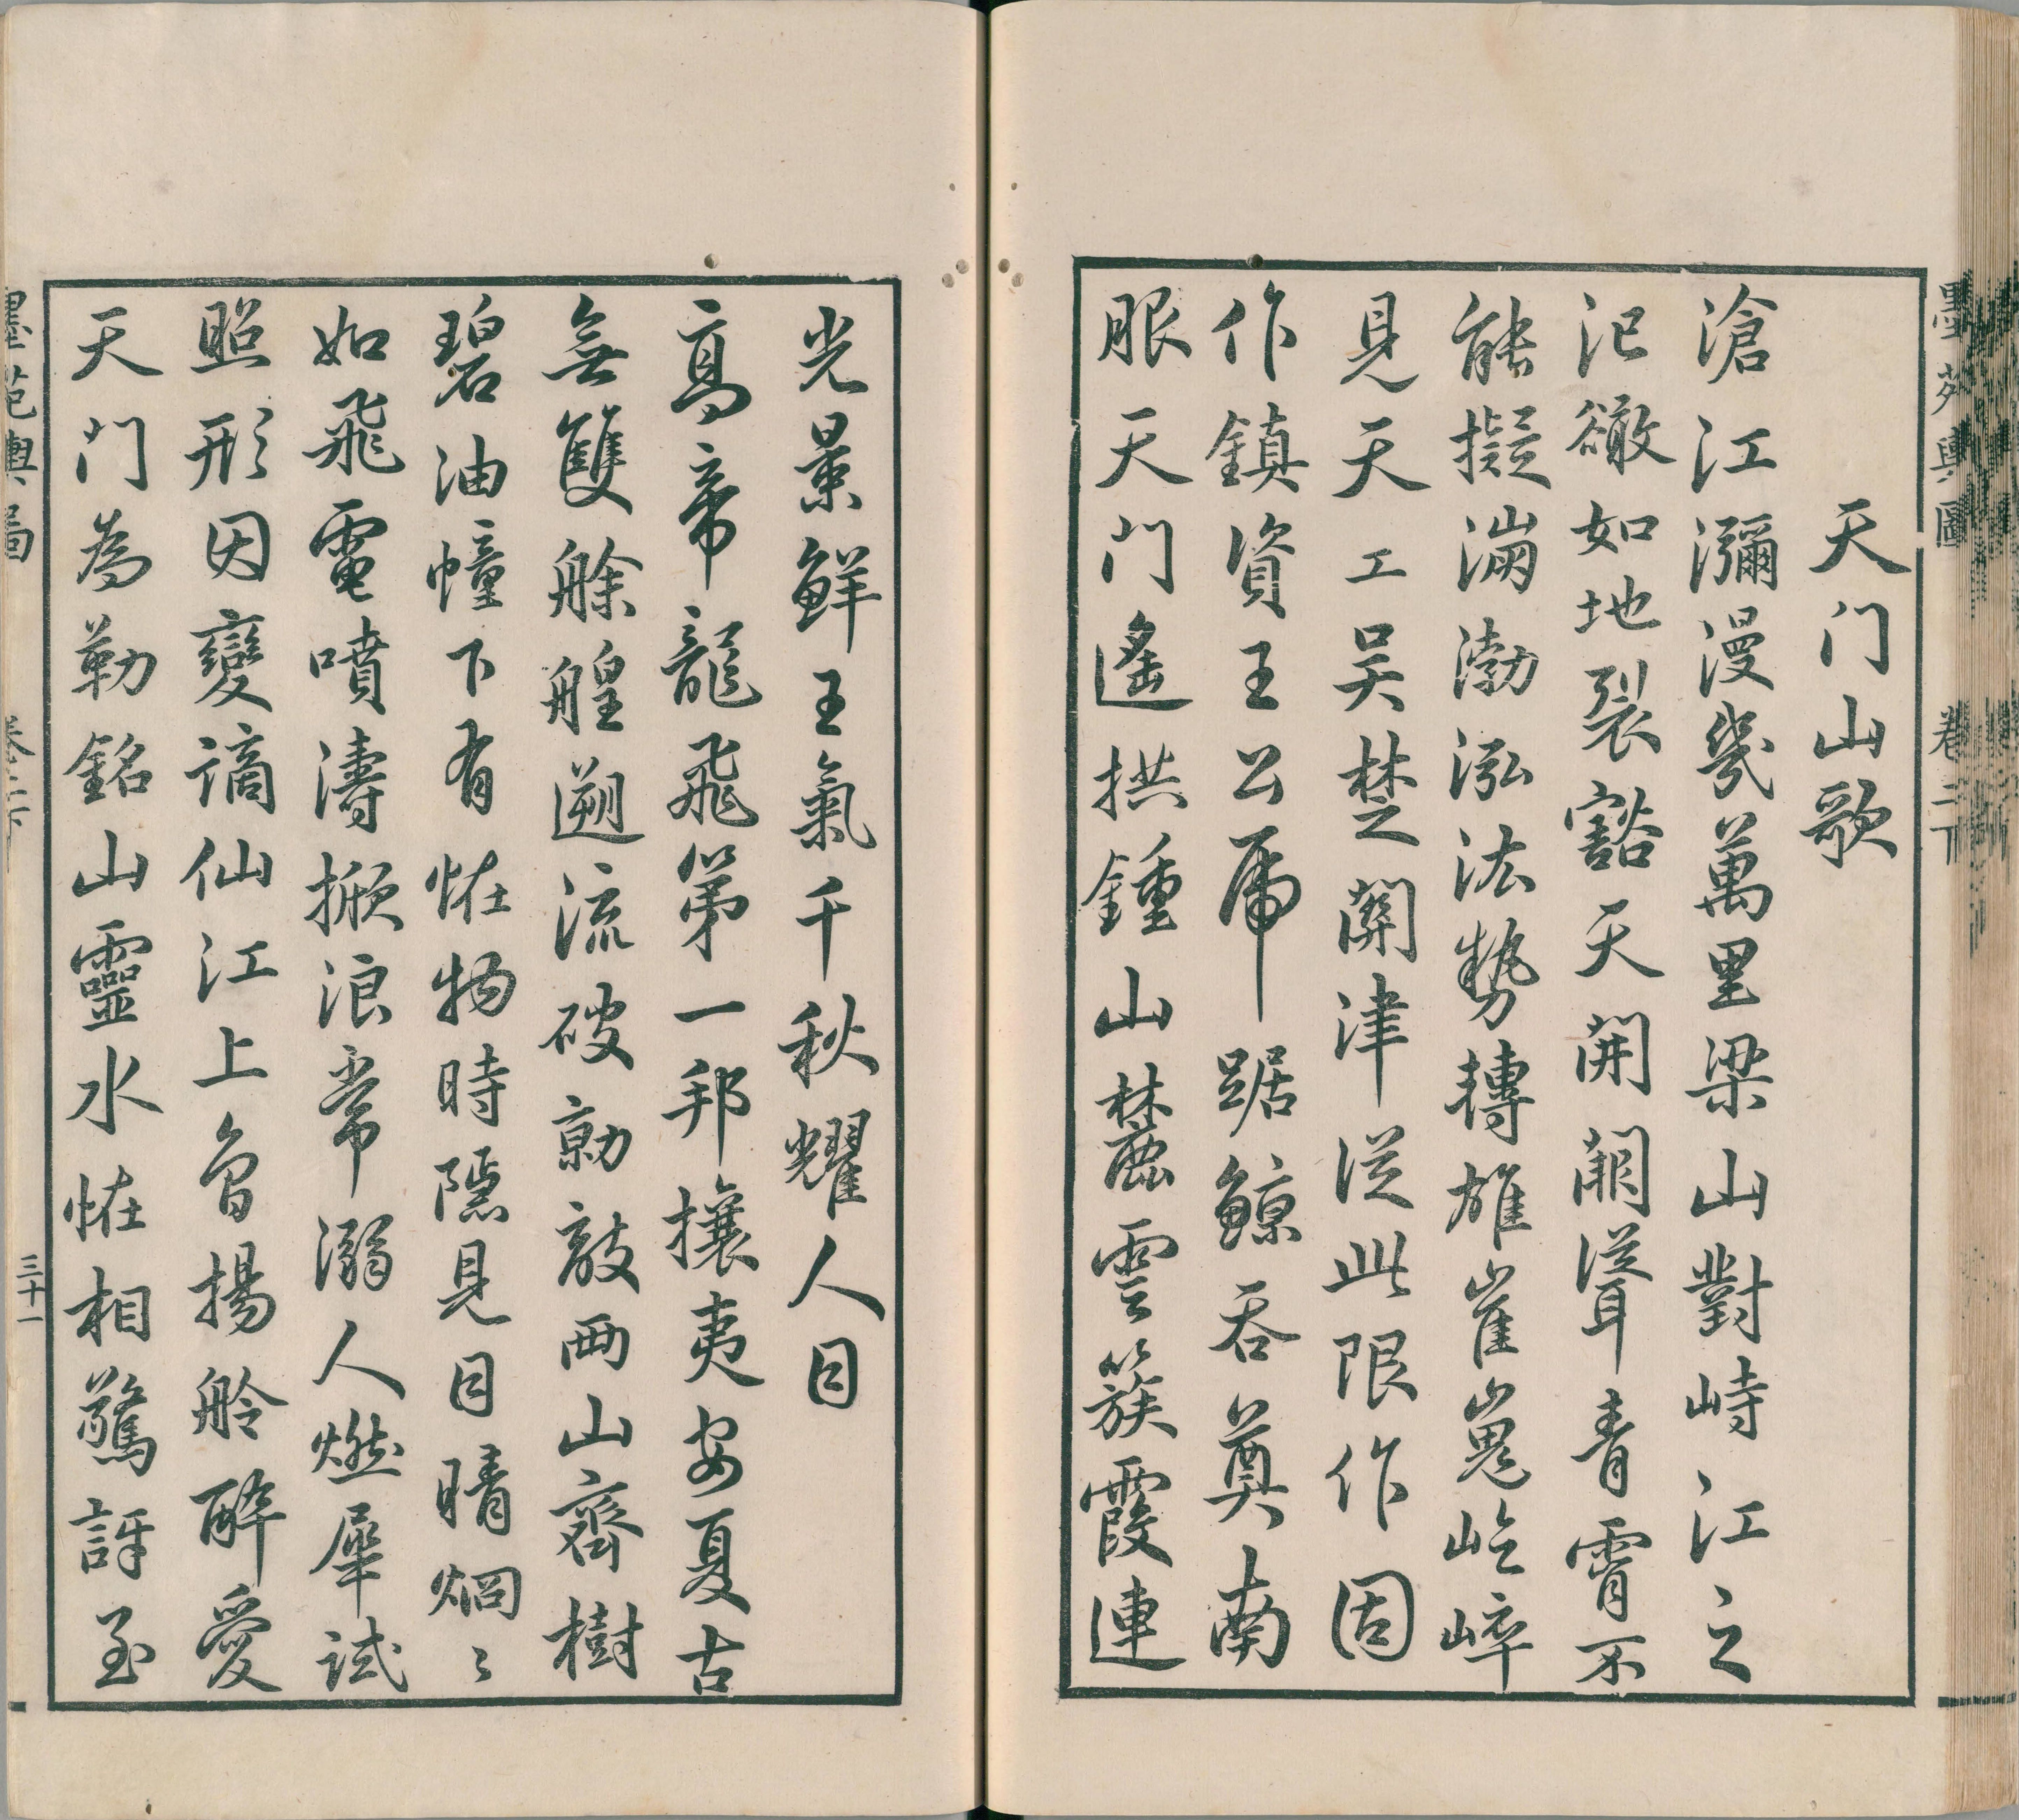 天門山歌
滄江瀰漫幾萬里梁山對峙江之
汜皦如地裂豁天開關聳青霄不
能擬滿渤泓汯勢轉雄崔嵬屹崒
見天工吳楚關津從此限作固
作鎮資王公虎踞鯨吞奠南
服天門遙拱鍾山麓雲簇霞連
光景鮮王氣千秋耀人目
高帝龍飛第一邦攘夷安夏古
無雙艅艎遡流破勍敵兩山齊樹
碧油幢下有怪物時隱見目睛烱〻
如飛電噴濤掀浪常溺人燃犀試
照形因變謫仙江上曾揚舲醉愛
天門為勒銘山靈水怪相驚訝至
墨苑輿圖
卷二下
墨苑輿圖
卷二下
三十一